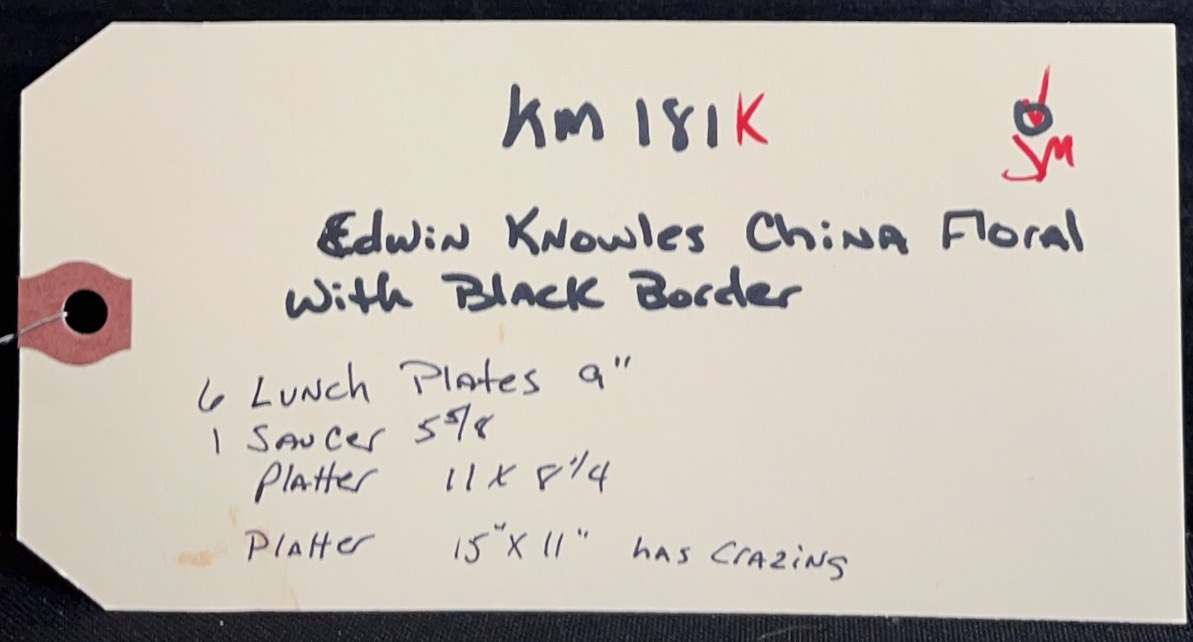 KM 181K
JM
Edwin Knowles China Floral
With Black Border
6 Lunch Plates 9"
1 Saucer 5 5/8
Platter 11 X 8 1/4
Platter 15" X 11" has Crazing